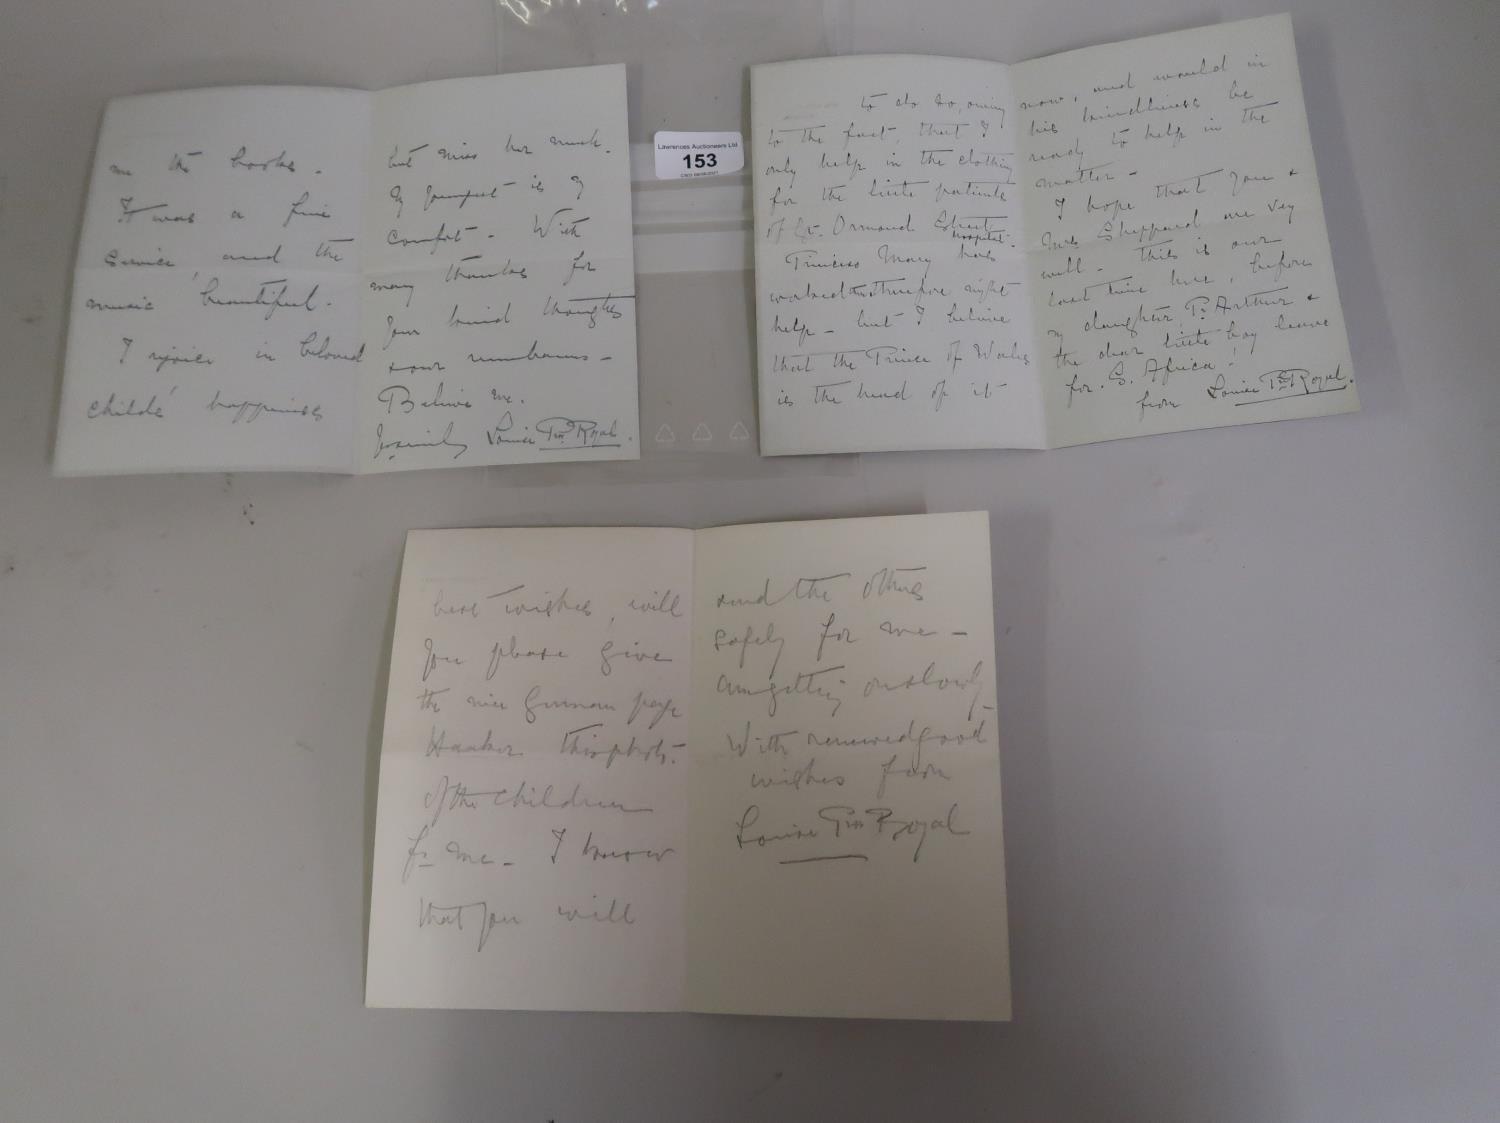 me the books.
It was a fine
service, and the
music beautiful.
I rejoice in beloved
childs' happiness
but miss her much.
My youngest is my
comfort. With
many thanks for
your kind thoughts
& our remembrances -
Believe me.
Yrs sincerely Louise Pss Royal.
Lawrences Auctioneers Ltd
153
to do so, owing
to the fact, that I
only help in the clothing
for the little patients
of Gt. Ormond Street
Hospital.
Princess Mary has
worked & therefore might
help - but I believe
that the Prince of Wales
is the head of it
now, and would in
his kindliness be
ready to help in the
matter -
I hope that you &
Mrs Sheppard are very
well - this is our
last time here, before
my daughter, P. Arthur &
the dear little boy leave
for S. Africa!
from Louise Pss Royal.
best wishes, will
you please give
the nice German page
this photo:
of the children
fr me - I know
that you will
send the others
safely for me -
Am getting on slowly -
With renewed good
wishes from
Louise Pss Royal